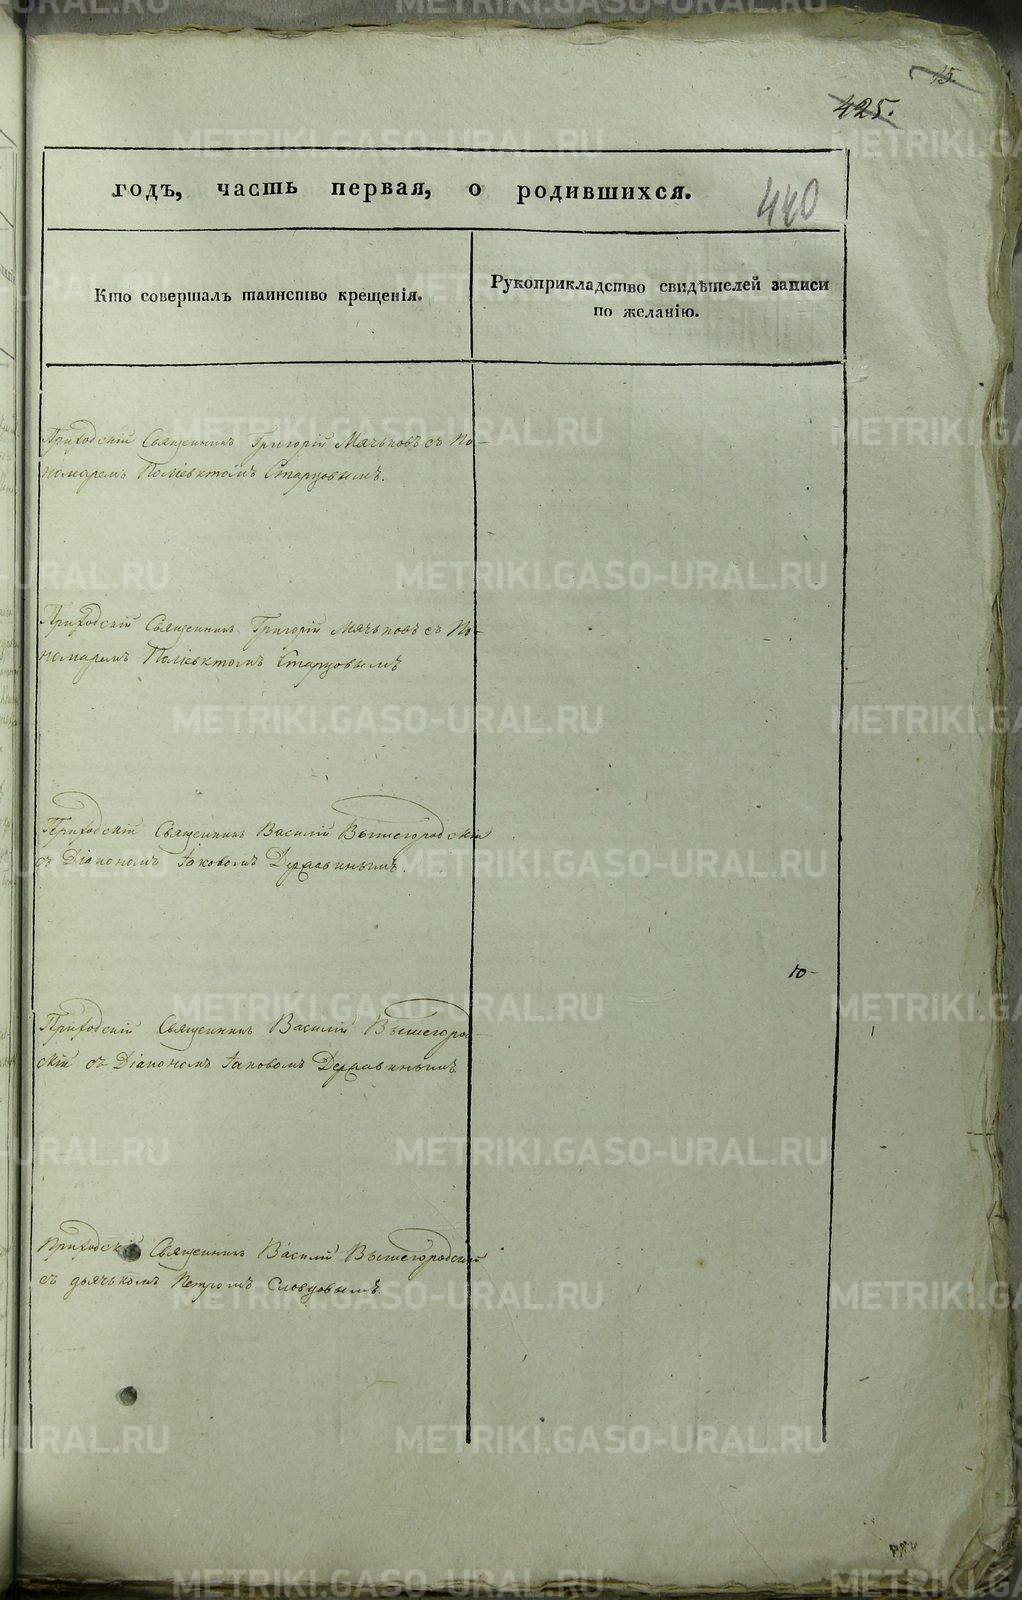 15.
425.
годъ, часть первая, о родившихся.
440
Кто совершалъ таинство крещенія.
Рукоприкладство свидѣтелей записи
по желанію.
Приходскій Священникъ Григорій Мячковъ съ По-
номаремъ Поліевктомъ Старцовымъ.
Приходскій Священникъ Григорій Мячьковъ съ По-
номаремъ Поліевктомъ Старцовымъ
Приходскій Священникъ Василій Вышегородскій
съ Діакономъ Іаковомъ Державинымъ.
10-
Приходскій Священникъ Василій Вышегород-
скій съ Діакономъ Іаковомъ Державинымъ
Приходскій Священникъ Василій Вышегородскій
съ дьячькомъ Петромъ Словцовымъ.
METRIKI.GASO-URAL.RU